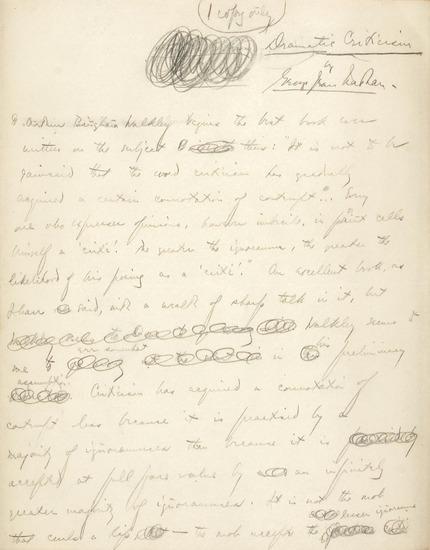 1 copy only
Dramatic Criticism
by
George Jean Nathan.
Arthur Bingham Walkley begins the best book ever
written on the subject thus: "It is not to be
gainsaid that the word criticism has gradually
acquired a certain connotation of contempt"... Every
one who expresses opinions, however imbecile, in print calls
himself a 'critic'. The greater the ignoramus, the greater the
likelihood of his posing as a 'critic'." An excellent book, as
I have said, with a wealth of sharp talk in it, but
Walkley seems to
me to err somewhat in his preliminary
assumption. Criticism has acquired a connotation of
contempt less because it is practised by a
majority of ignoramuses than because it is
accepted at full face value by an infinitely
greater majority of ignoramuses. It is not the mob
that curls a lip — the mob accepts the lesser ignoramus